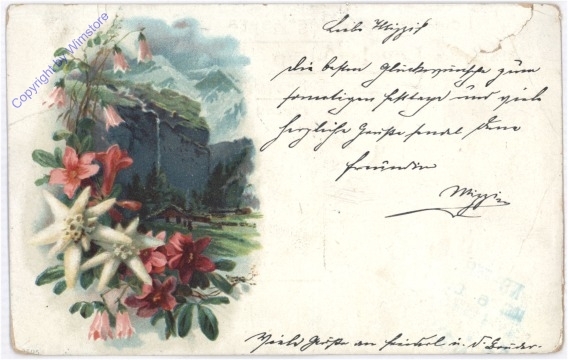 Copyright by Wimstore
Liebe Mizzi!
Die besten Glückwünsche zum
Festtage und viele
herzliche Grüße sendet Deine
Freundin
Mizzi
Viele Grüße an Friederl u. d. Bruder.